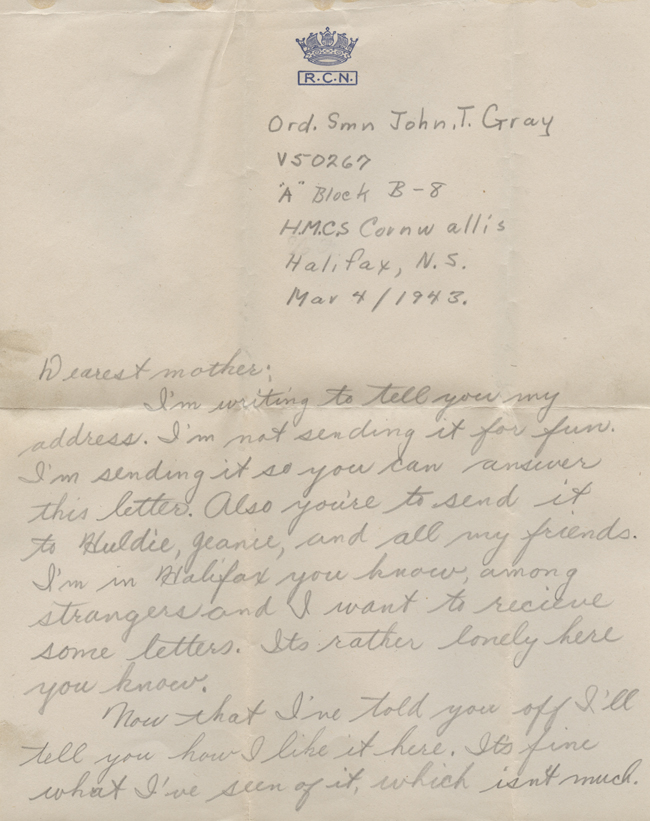 R.C.N.
Ord. Smn John. T. Gray
V50267
"A" Block B-8
H.M.C.S Cornwallis
Halifax, N.S.
Mar 4/1943.
Dearest mother;
I'm writing to tell you my
address. I'm not sending it for fun.
I'm sending it so you can answer
this letter. Also you're to send it
to Huldie, Jeanie, and all my friends.
I'm in Halifax you know, among
strangers and I want to recieve
some letters. Its rather lonely here
you know.
Now that I've told you off I'll
tell you how I like it here. It's fine
what I've seen of it, which isn't much.